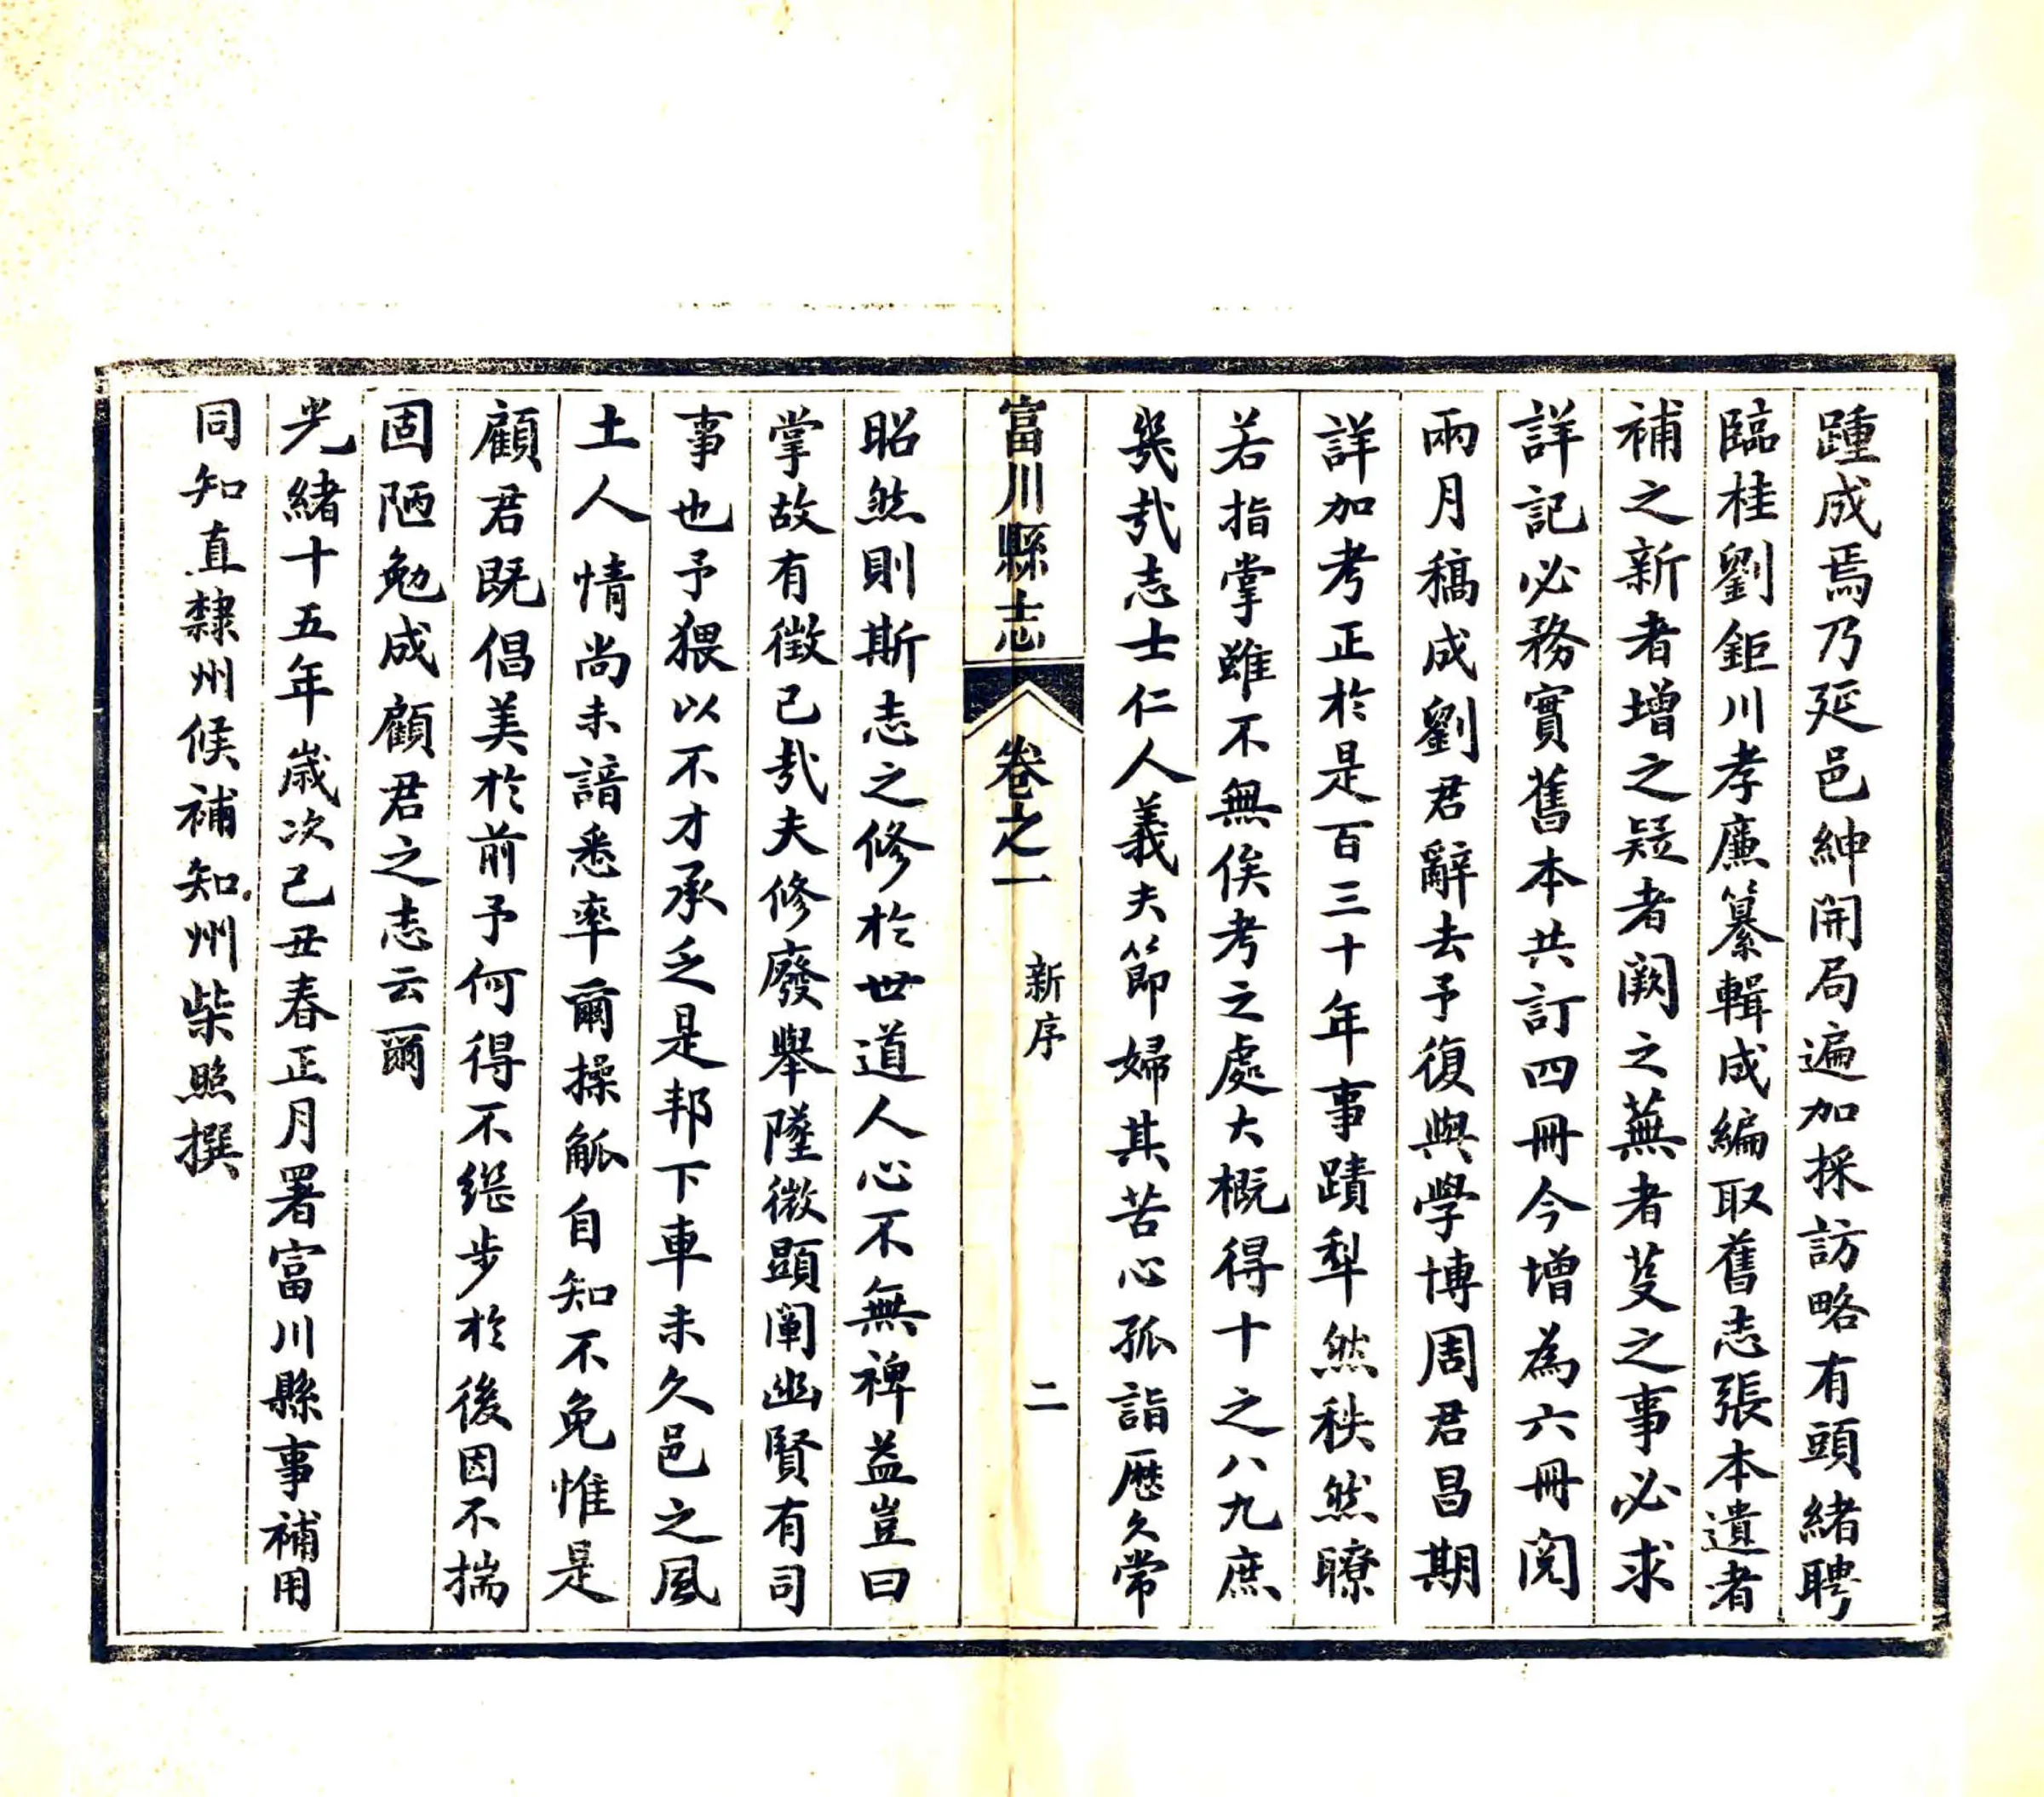 踵成焉乃延邑紳開局遍加採訪略有頭緒聘
臨桂劉鉅川孝廉纂輯成編取舊志張本遺者
補之新者增之疑者闕之蕪者芟之事必求
詳記必務實舊本共訂四冊今增為六冊閱
兩月稿成劉君辭去予復與學博周君昌期
詳加考正於是百三十年事蹟犁然秩然瞭
若指掌雖不無俟考之處大概得十之八九庶
幾哉志士仁人義夫節婦其苦心孤詣歷久常
富川縣志 卷之一 新序 二
昭然則斯志之修於世道人心不無裨益豈曰
掌故有徵已哉夫修廢舉墜微顯闡幽賢有司
事也予猥以不才承乏是邦下車未久邑之風
土人情尚未諳悉率爾操觚自知不免惟是
顧君既倡美於前予何得不継步於後因不揣
固陋勉成顧君之志云爾
光緒十五年歲次己丑春正月署富川縣事補用
同知直隸州候補知州柴照撰